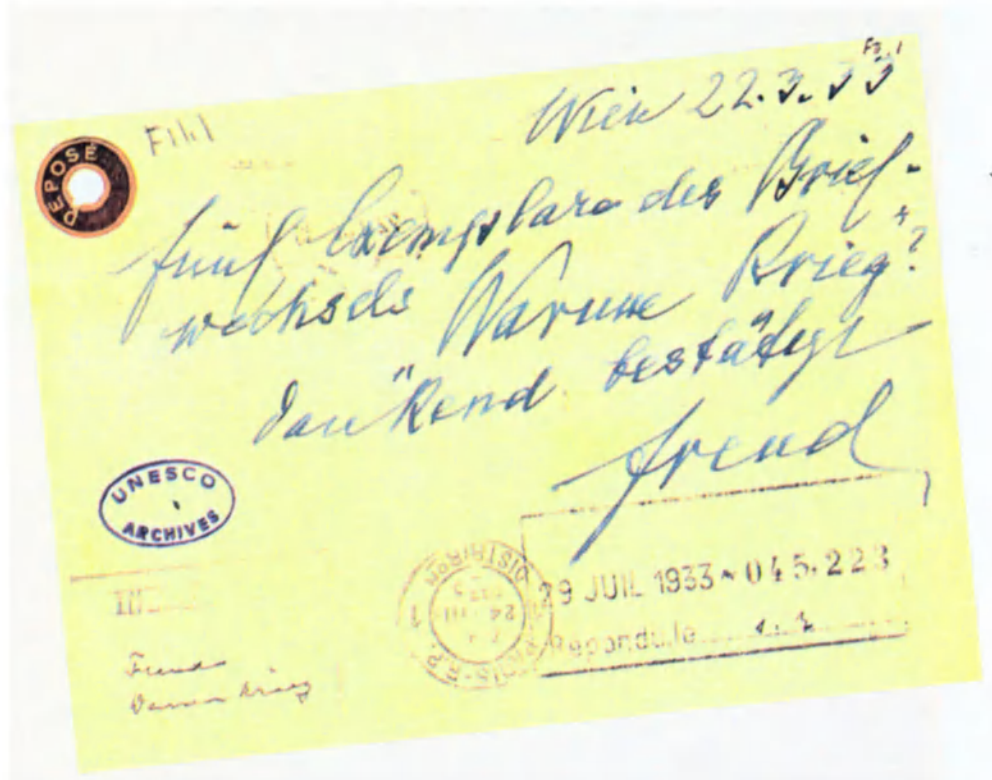 Fo. 1
Wien 22.3.33
DEPOSÉ
fünf Exemplare des Brief-
wechsels Warum Krieg?
dankend bestätigt
Freud
UNESCO
ARCHIVES
29 JUIL 1933 ~ 045.223
Repondu le
Freud
Warum Krieg